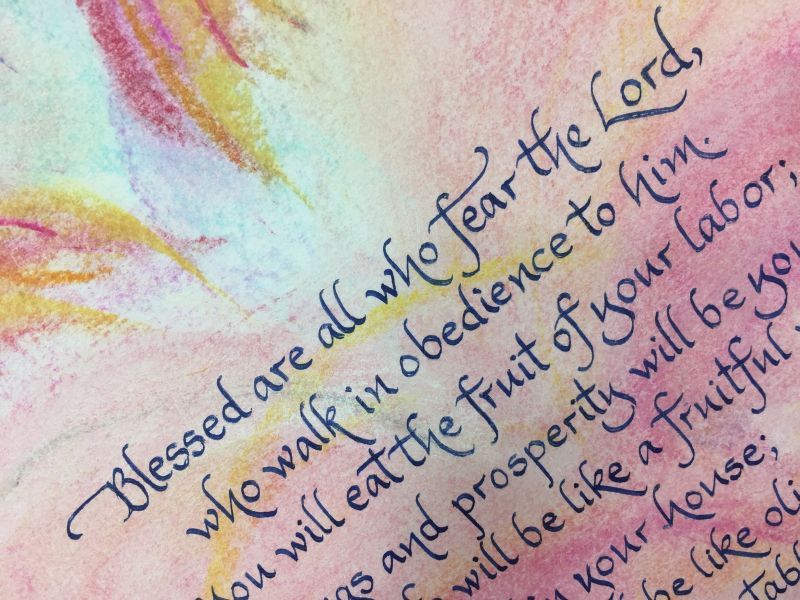 Blessed are all who fear the Lord,
who walk in obedience to him.
you will eat the fruit of your labor;
and prosperity will be
will be like a fruitful
your house;
be like